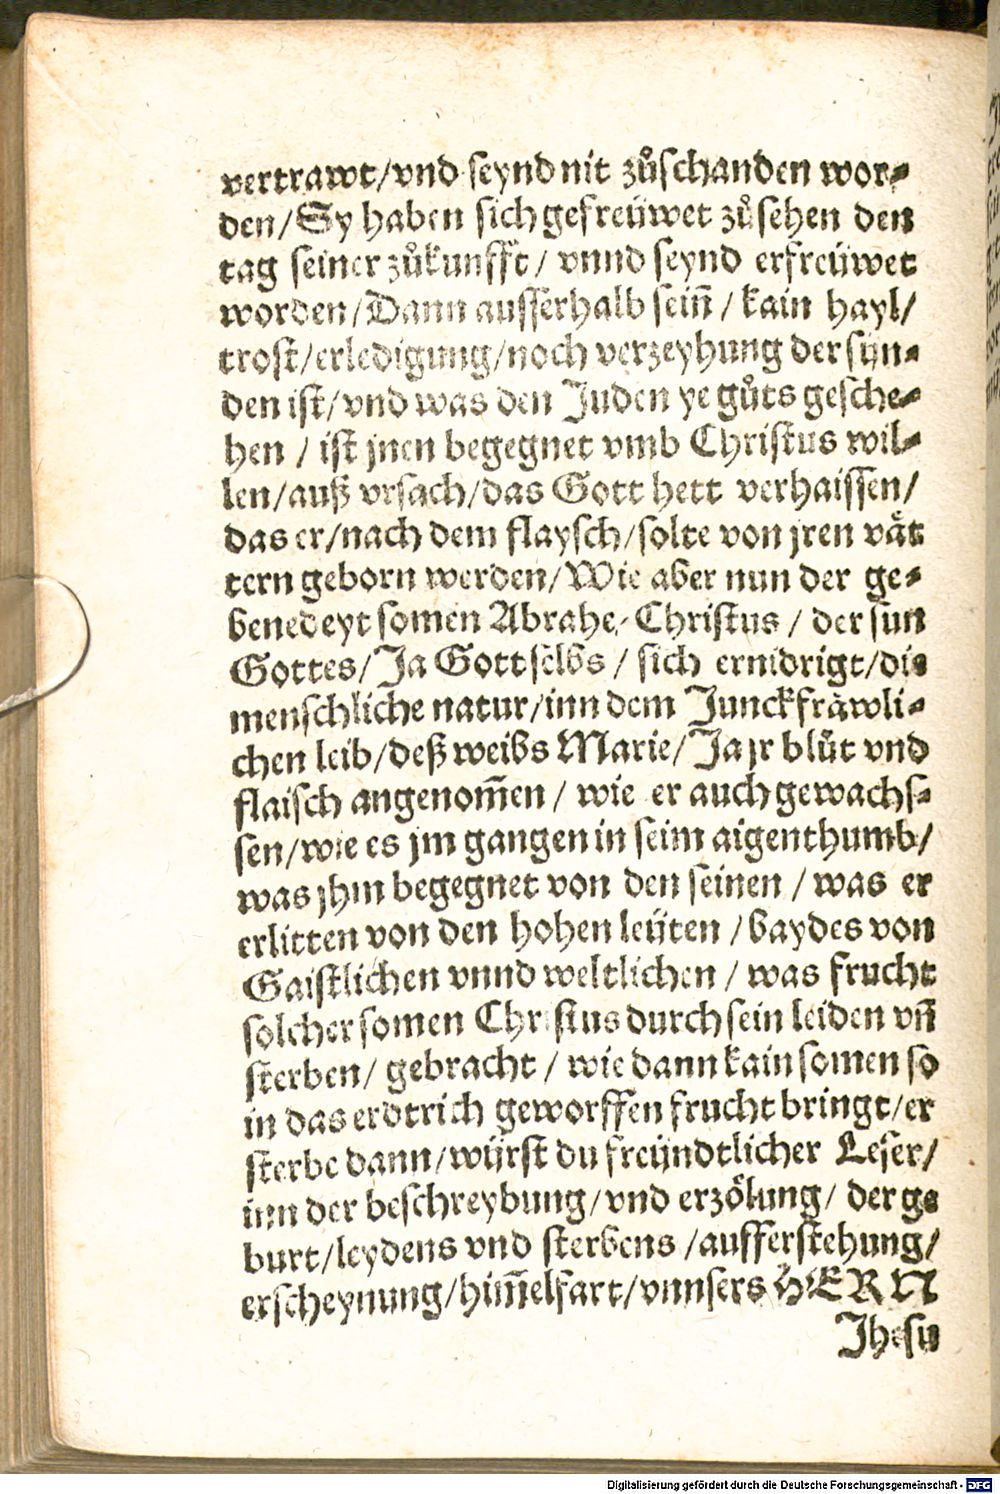 vertrawt/vnd seynd nit zůschanden wor-
den/Sy haben sich gefreüwet zůsehen den
tag seiner zůkunfft/ vnnd seynd erfreüwet
worden/Dann ausserhalb sein̄ / kain hayl/
trost/erledigung/noch verzeyhung der sün-
den ist/vnd was den Juden ye gůts gesche-
hen / ist jnen begegnet vmb Christus wil-
len/auß vrsach/das Gott hett verhaissen/
das er/nach dem flaysch/solte von jren vät
tern geborn werden/Wie aber nun der ge-
benedeyt somen Abrahe/ Christus / der sun
Gottes/Ja Gott selbs / sich ernidrigt/die
menschliche natur/inn dem Junckfräwli-
chen leib/deß weibs Marie/Ja jr blůt vnd
flaisch angenom̄en / wie er auch gewachs-
sen/wie es jm gangen in seim aigenthumb/
was jhm begegnet von den seinen / was er
erlitten von den hohen leüten / baydes von
Gaistlichen vnnd weltlichen / was frucht
solcher somen Christus durch sein leiden vn̄
sterben/ gebracht / wie dann kain somen so
in das erdtrich geworffen frucht bringt/er
sterbe dann/würst du freündtlicher Leser/
inn der beschreybung/vnd erzölung/ der ge
burt/leydens vnd sterbens /aufferstehung/
erscheynung/him̄elfart/vnnsers HERN
Jhesu
Digitalisierung gefördert durch die Deutsche Forschungsgemeinschaft - DFG